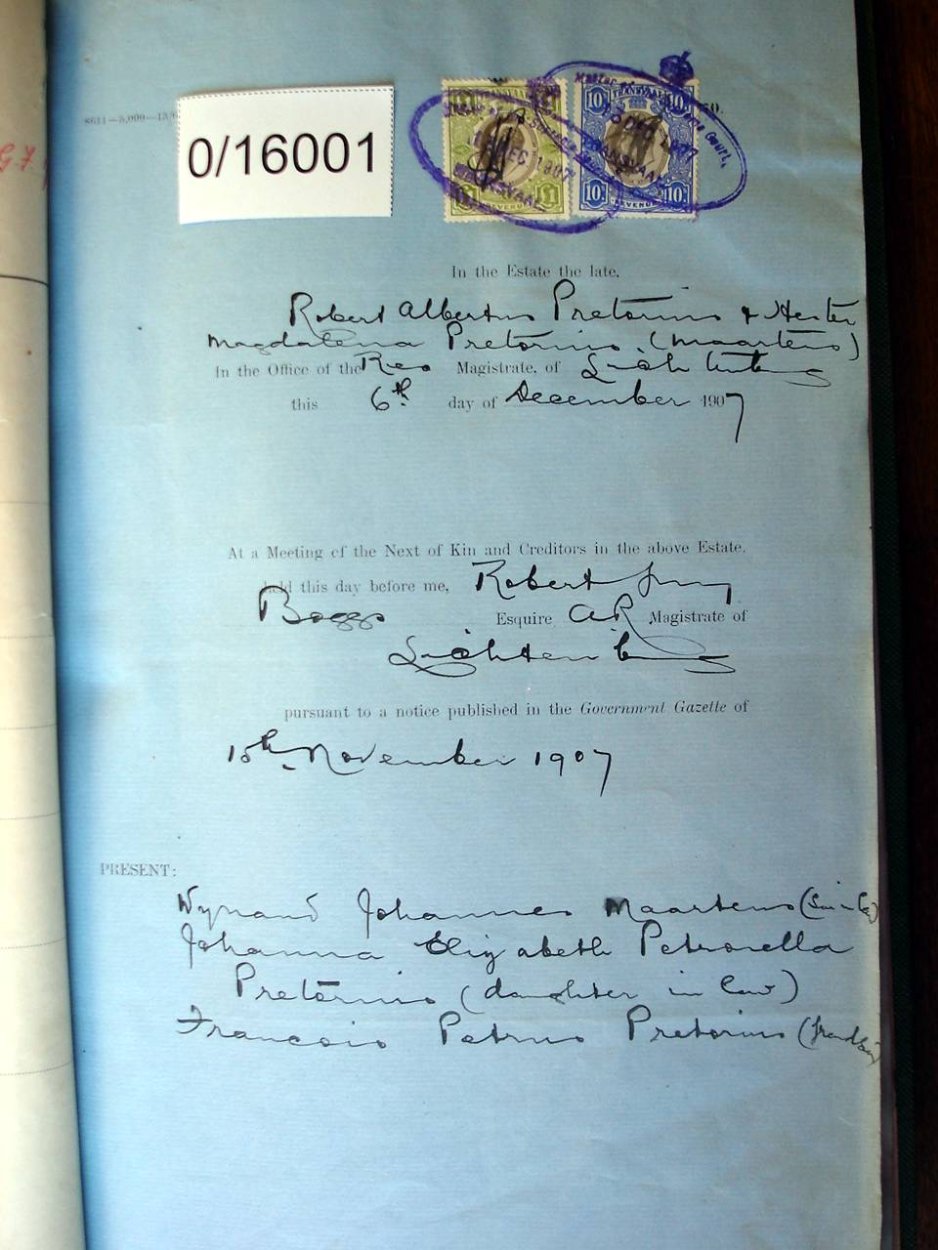 0/16001
TRANSVAAL
10/ 10/
10/- 10/-
REVENUE
£1
In the Estate the late,
Robert Albertus Pretorius & Hester
Magdalena Pretorius (Maartens)
In the Office of the Res Magistrate, of Lichtenburg
this 6th day of December 1907
At a Meeting of the Next of Kin and Creditors in the above Estate,
held this day before me, Robert
Boggs Esquire AR Magistrate of
Lichtenburg
pursuant to a notice published in the Government Gazette of
15th November 1907
PRESENT:
Wynand Johannes Maartens (Son in law)
Johanna Elizabeth Petronella
Pretorius (daughter in law)
Francois Petrus Pretorius (Grandson)